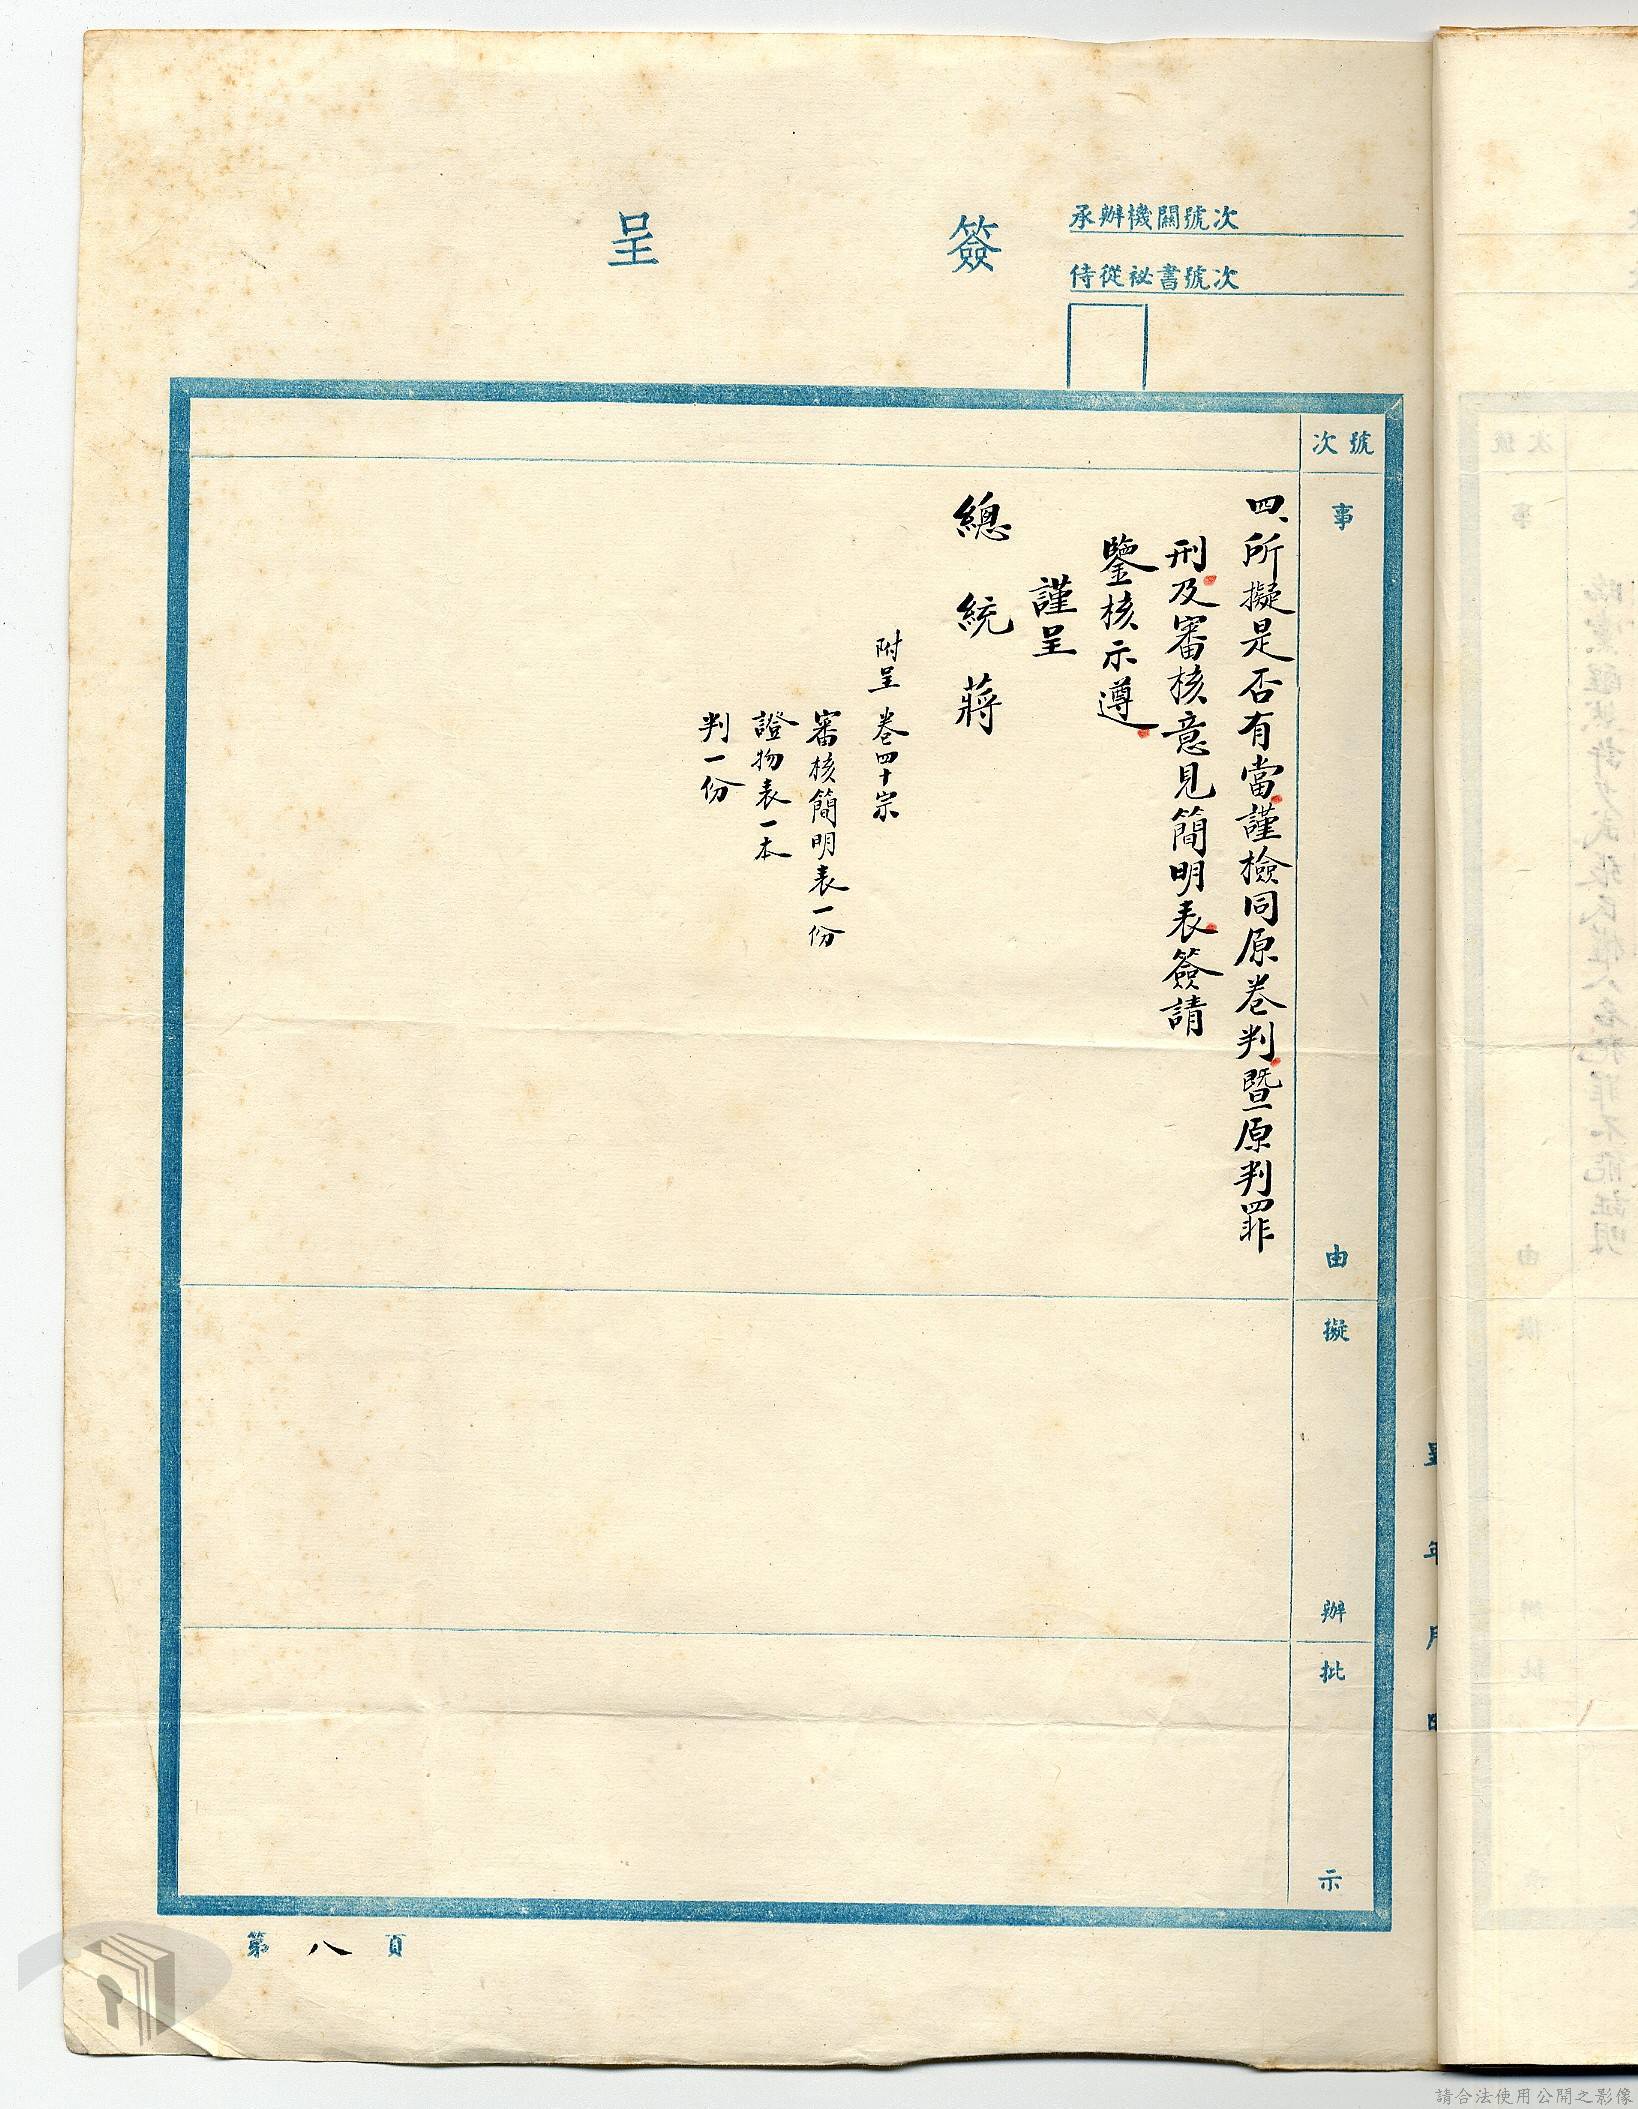 簽呈
承辦機關號次
侍從祕書號次
號次
事由
擬辦
批示
四、所擬是否有當謹檢同原卷判暨原判罪
刑及審核意見簡明表簽請
鑒核示遵
謹呈
總統蔣
附呈 卷四十宗
審核簡明表一份
證物表一本
判一份
第八頁
呈 年 月 日
請合法使用公開之影像